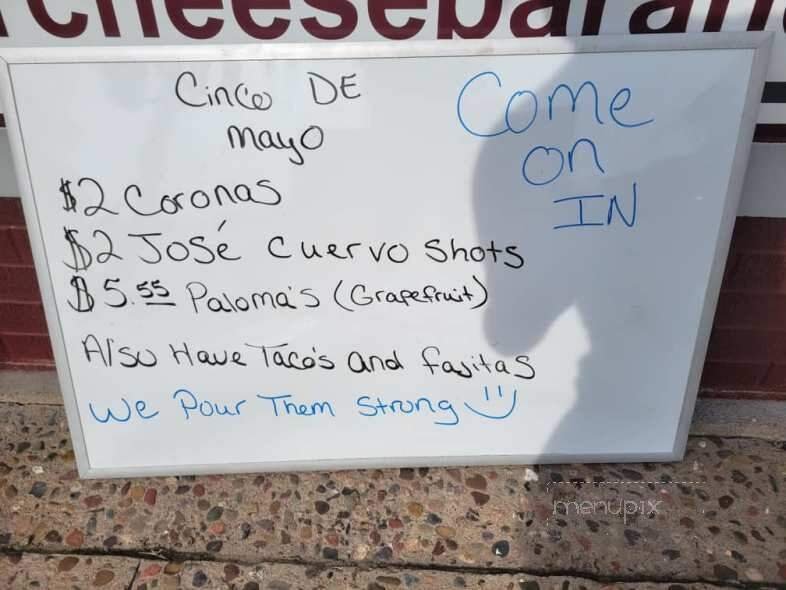 cheesebaran
Cinco DE
mayo
Come
on
IN
$2 Coronas
$2 José Cuervo Shots
$5.55 Paloma's (Grapefruit)
Also Have Taco's and fajitas
We Pour Them Strong
menupix